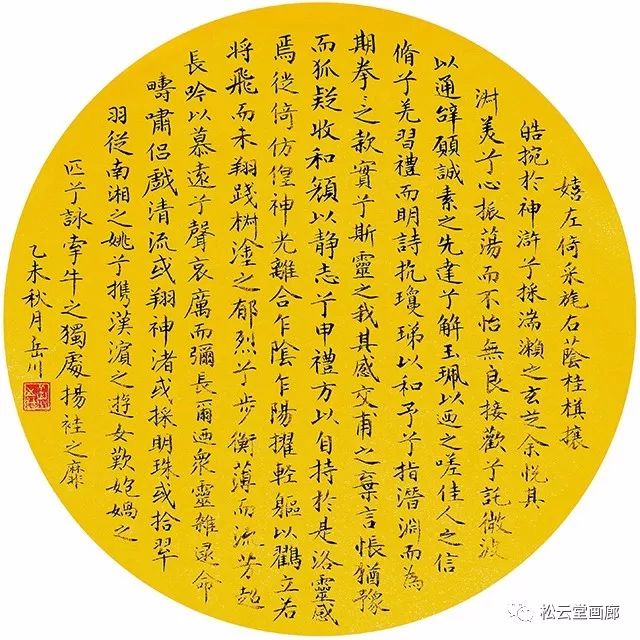 嬉左倚采旄右蔭桂棋攘
皓捥於神滸兮採湍瀨之玄芝余悅其
淑美兮心振蕩而不怡無良接歡兮託微波
以通辭願誠素之先達兮解玉珮以之嗟佳人之信
脩兮羌習禮而明詩抗瓊珶以和予兮指潛淵而為
期拳之款實兮斯靈之我其感交甫之棄言悵猶豫
而狐疑收和顏以静志兮申禮方以自持於是洛靈感
焉徙倚仿偟神光離合乍陰乍陽擢軽軀以鸖立若
將飛而未翔踐椒塗之郁烈兮步衡薄而流芳超
長吟以慕遠兮聲哀厲而彌長爾迺衆靈雜遝命
疇嘯侶戲清流或翔神渚或採明珠或拾翠
羽從南湘之姚兮携漢濱之遊女歎媧之
匹兮詠牽牛之獨處揚袿之靡
乙未秋月岳川
松云堂画廊